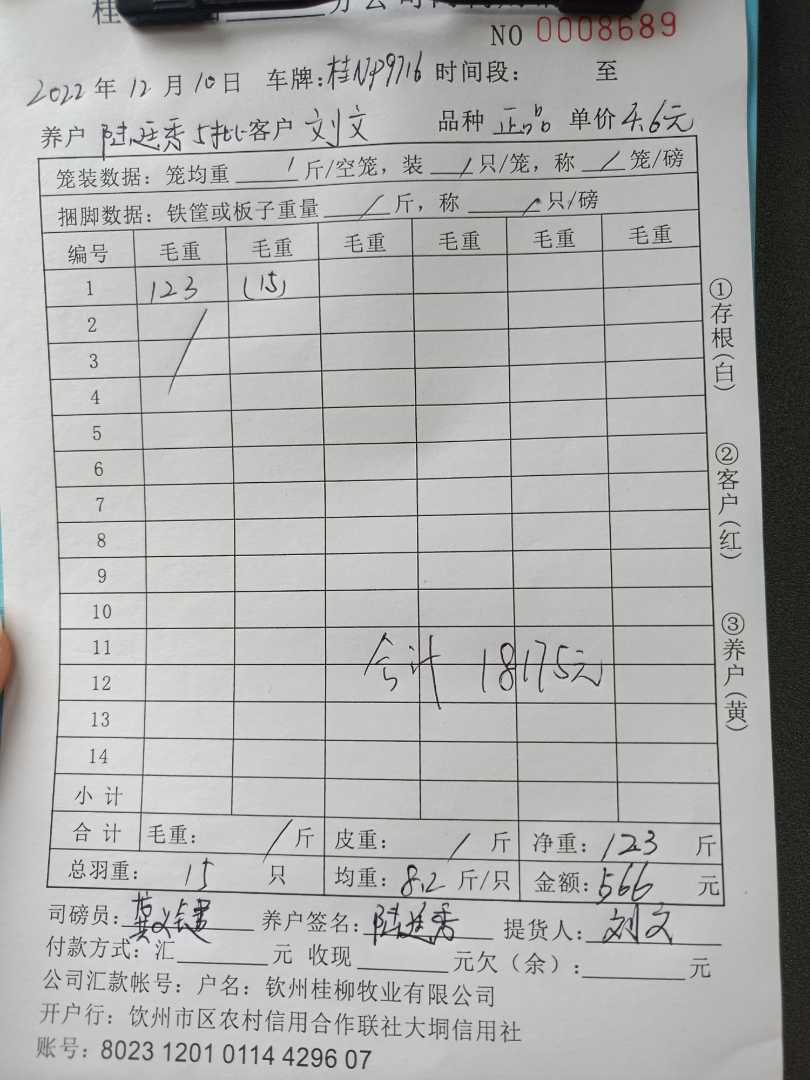 桂 分公司
NO 0008689
2022年12月10日 车牌:桂NP9716 时间段: 至
养户 陆廷秀 5批 客户 刘文 品种 正品 单价 4.6元
笼装数据: 笼均重 / 斤/空笼, 装 / 只/笼, 称 / 笼/磅
捆脚数据: 铁筐或板子重量 / 斤, 称 / 只/磅
编号 毛重 毛重 毛重 毛重 毛重 毛重
1 123 (15)
2
3
4
5
6
7
8
9
10
11
12
合计 18175元
13
14
小计
合计 毛重: / 斤 皮重: / 斤 净重: 123 斤
总羽重: 15 只 均重: 8.2 斤/只 金额: 566 元
①存根(白)
②客户(红)
③养户(黄)
司磅员: 养户签名: 陆廷秀 提货人: 刘文
付款方式: 汇 元 收现 元欠(余): 元
公司汇款帐号: 户名: 钦州桂柳牧业有限公司
开户行: 钦州市区农村信用合作联社大垌信用社
账号: 8023 1201 0114 4296 07